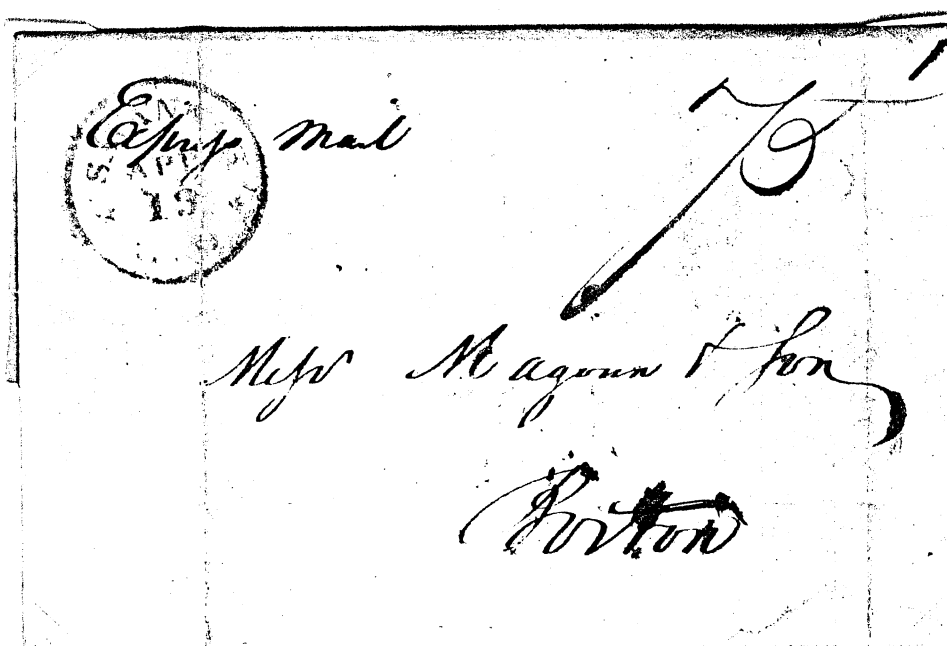 Express Mail
APL
19
75
Messrs Magoun & Son
Boston